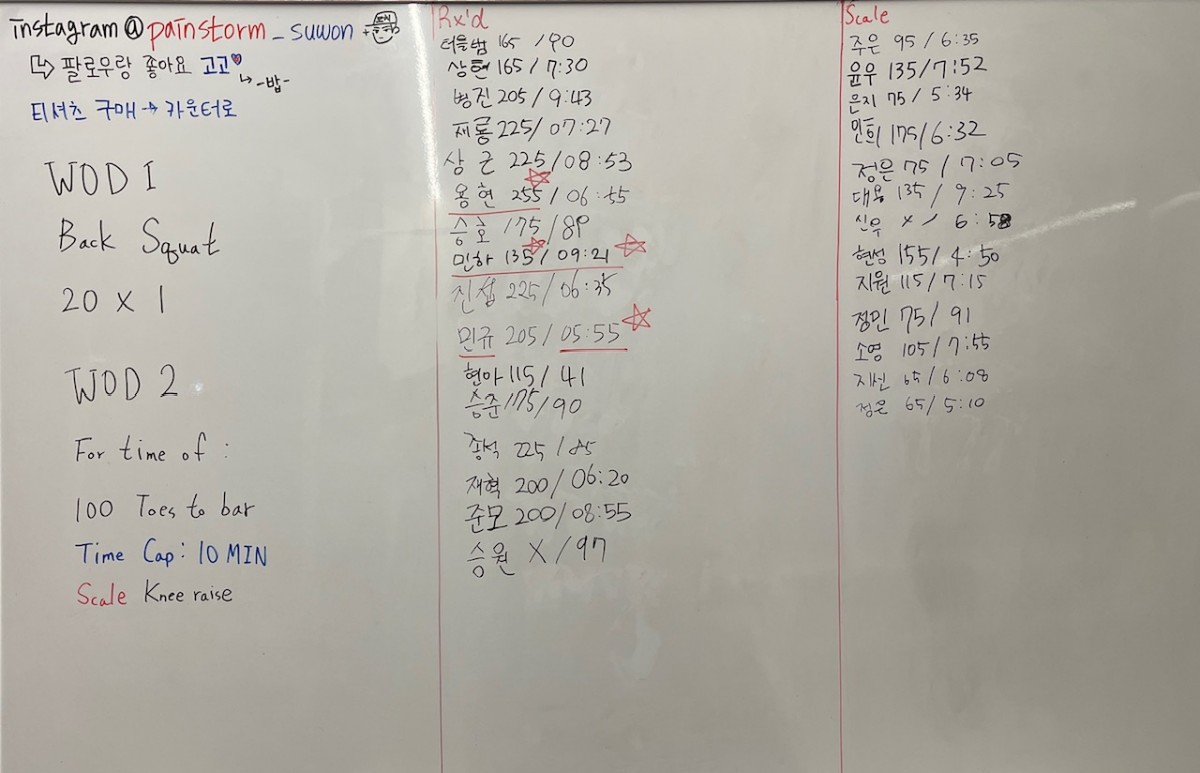 instagram @ painstorm _ suwon
↳ 팔로우랑 좋아요 고고♥
↳ -밥-
티셔츠 구매 → 카운터로
WOD 1
Back Squat
20 x 1
WOD 2
For time of :
100 Toes to bar
Time Cap: 10 MIN
Scale Knee raise
Rx'd
165 / 90
상현 165 / 7:30
병진 205 / 9:43
재룡 225 / 07:27
상근 225 / 08:53
용현 255 / 06:55
승호 175 / 89
민하 135 / 09:21
진섭 225 / 06:35
민규 205 / 05:55
현아 115 / 41
승준 175 / 90
종석 225 / 85
재혁 200 / 06:20
준모 200 / 08:55
승원 X / 97
Scale
주은 95 / 6:35
윤우 135 / 7:52
은지 75 / 5:34
민트희 175 / 6:32
정은 75 / 7:05
대용 135 / 9:25
신우 x / 6:58
현성 155 / 4:50
지원 115 / 7:15
정민 75 / 91
소영 105 / 7:55
지선 65 / 6:08
정은 65 / 5:10